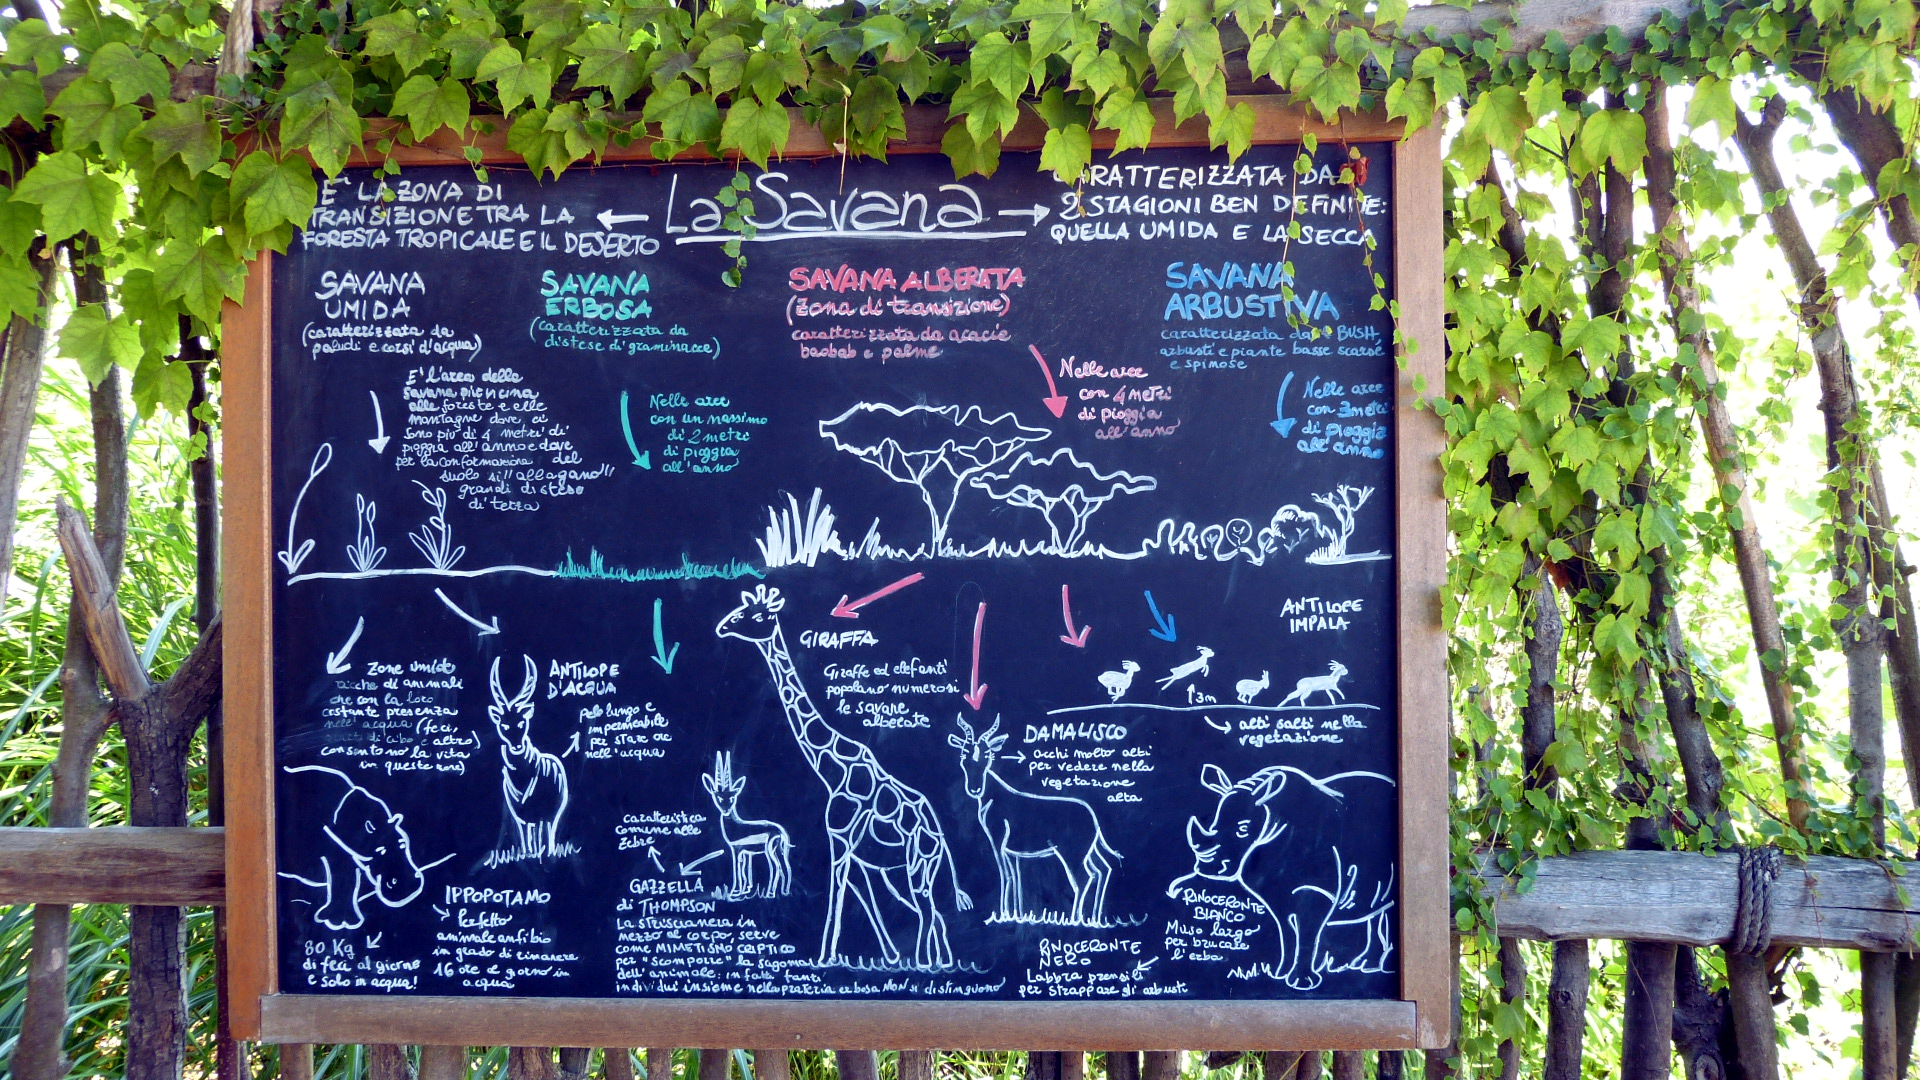 La Savana
E' LA ZONA DI
TRANSIZIONE TRA LA
FORESTA TROPICALE E IL DESERTO
CARATTERIZZATA DA
2 STAGIONI BEN DEFINITE:
QUELLA UMIDA E LA SECCA
SAVANA
UMIDA
(caratterizzata da
paludi e corsi d'acqua)
E' l'area della
savana più vicina
alle foreste e alle
montagne dove ci
sono più di 4 metri di
pioggia all'anno e dove
per la conformazione del
suolo si "allagano"
grandi distese
di terra
SAVANA
ERBOSA
(caratterizzata da
distese di graminacee)
Nelle aree
con un massimo
di 2 metri
di pioggia
all'anno
SAVANA ALBERATA
(zona di transizione)
caratterizzata da acacie
baobab e palme
Nelle aree
con 4 metri
di pioggia
all'anno
SAVANA
ARBUSTIVA
caratterizzata da BUSH,
arbusti e piante basse scarse
e spinose
Nelle aree
con 3 metri
di pioggia
all'anno
Zone umide
ricche di animali
che con la loro
costante presenza
nell'acqua (feci,
resti di cibo e altro)
consentono la vita
in queste zone)
ANTILOPE
D'ACQUA
pelo lungo e
impermeabile
per stare
nell'acqua
IPPOPOTAMO
Perfetto
animale anfibio
in grado di rimanere
16 ore al giorno in
acqua
80 Kg
di feci al giorno
e solo in acqua!
caratteristica
comune alle
zebre
GAZZELLA
di THOMPSON
La striscia nera in
mezzo al corpo, serve
come MIMETISMO CRIPTICO
per "scomporre" la sagoma
dell'animale: infatti tanti
individui insieme nella prateria erbosa NON si distinguono
GIRAFFA
Giraffe ed elefanti
popolano numerosi
le savane
alberate
DAMALISCO
occhi molto alti
per vedere nella
vegetazione
alta
ANTILOPE
IMPALA
3m
alti salti nella
vegetazione
RINOCERONTE
BIANCO
Muso largo
per brucare
l'erba
RINOCERONTE
NERO
Labbra prensili
per strappare gli arbusti